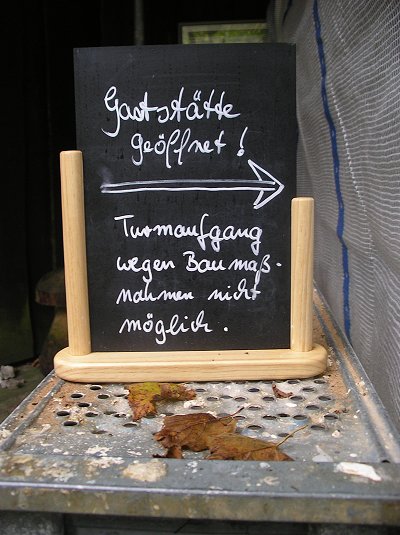 Gaststätte
geöffnet!
Turmaufgang
wegen Baumaß-
nahmen nicht
möglich.